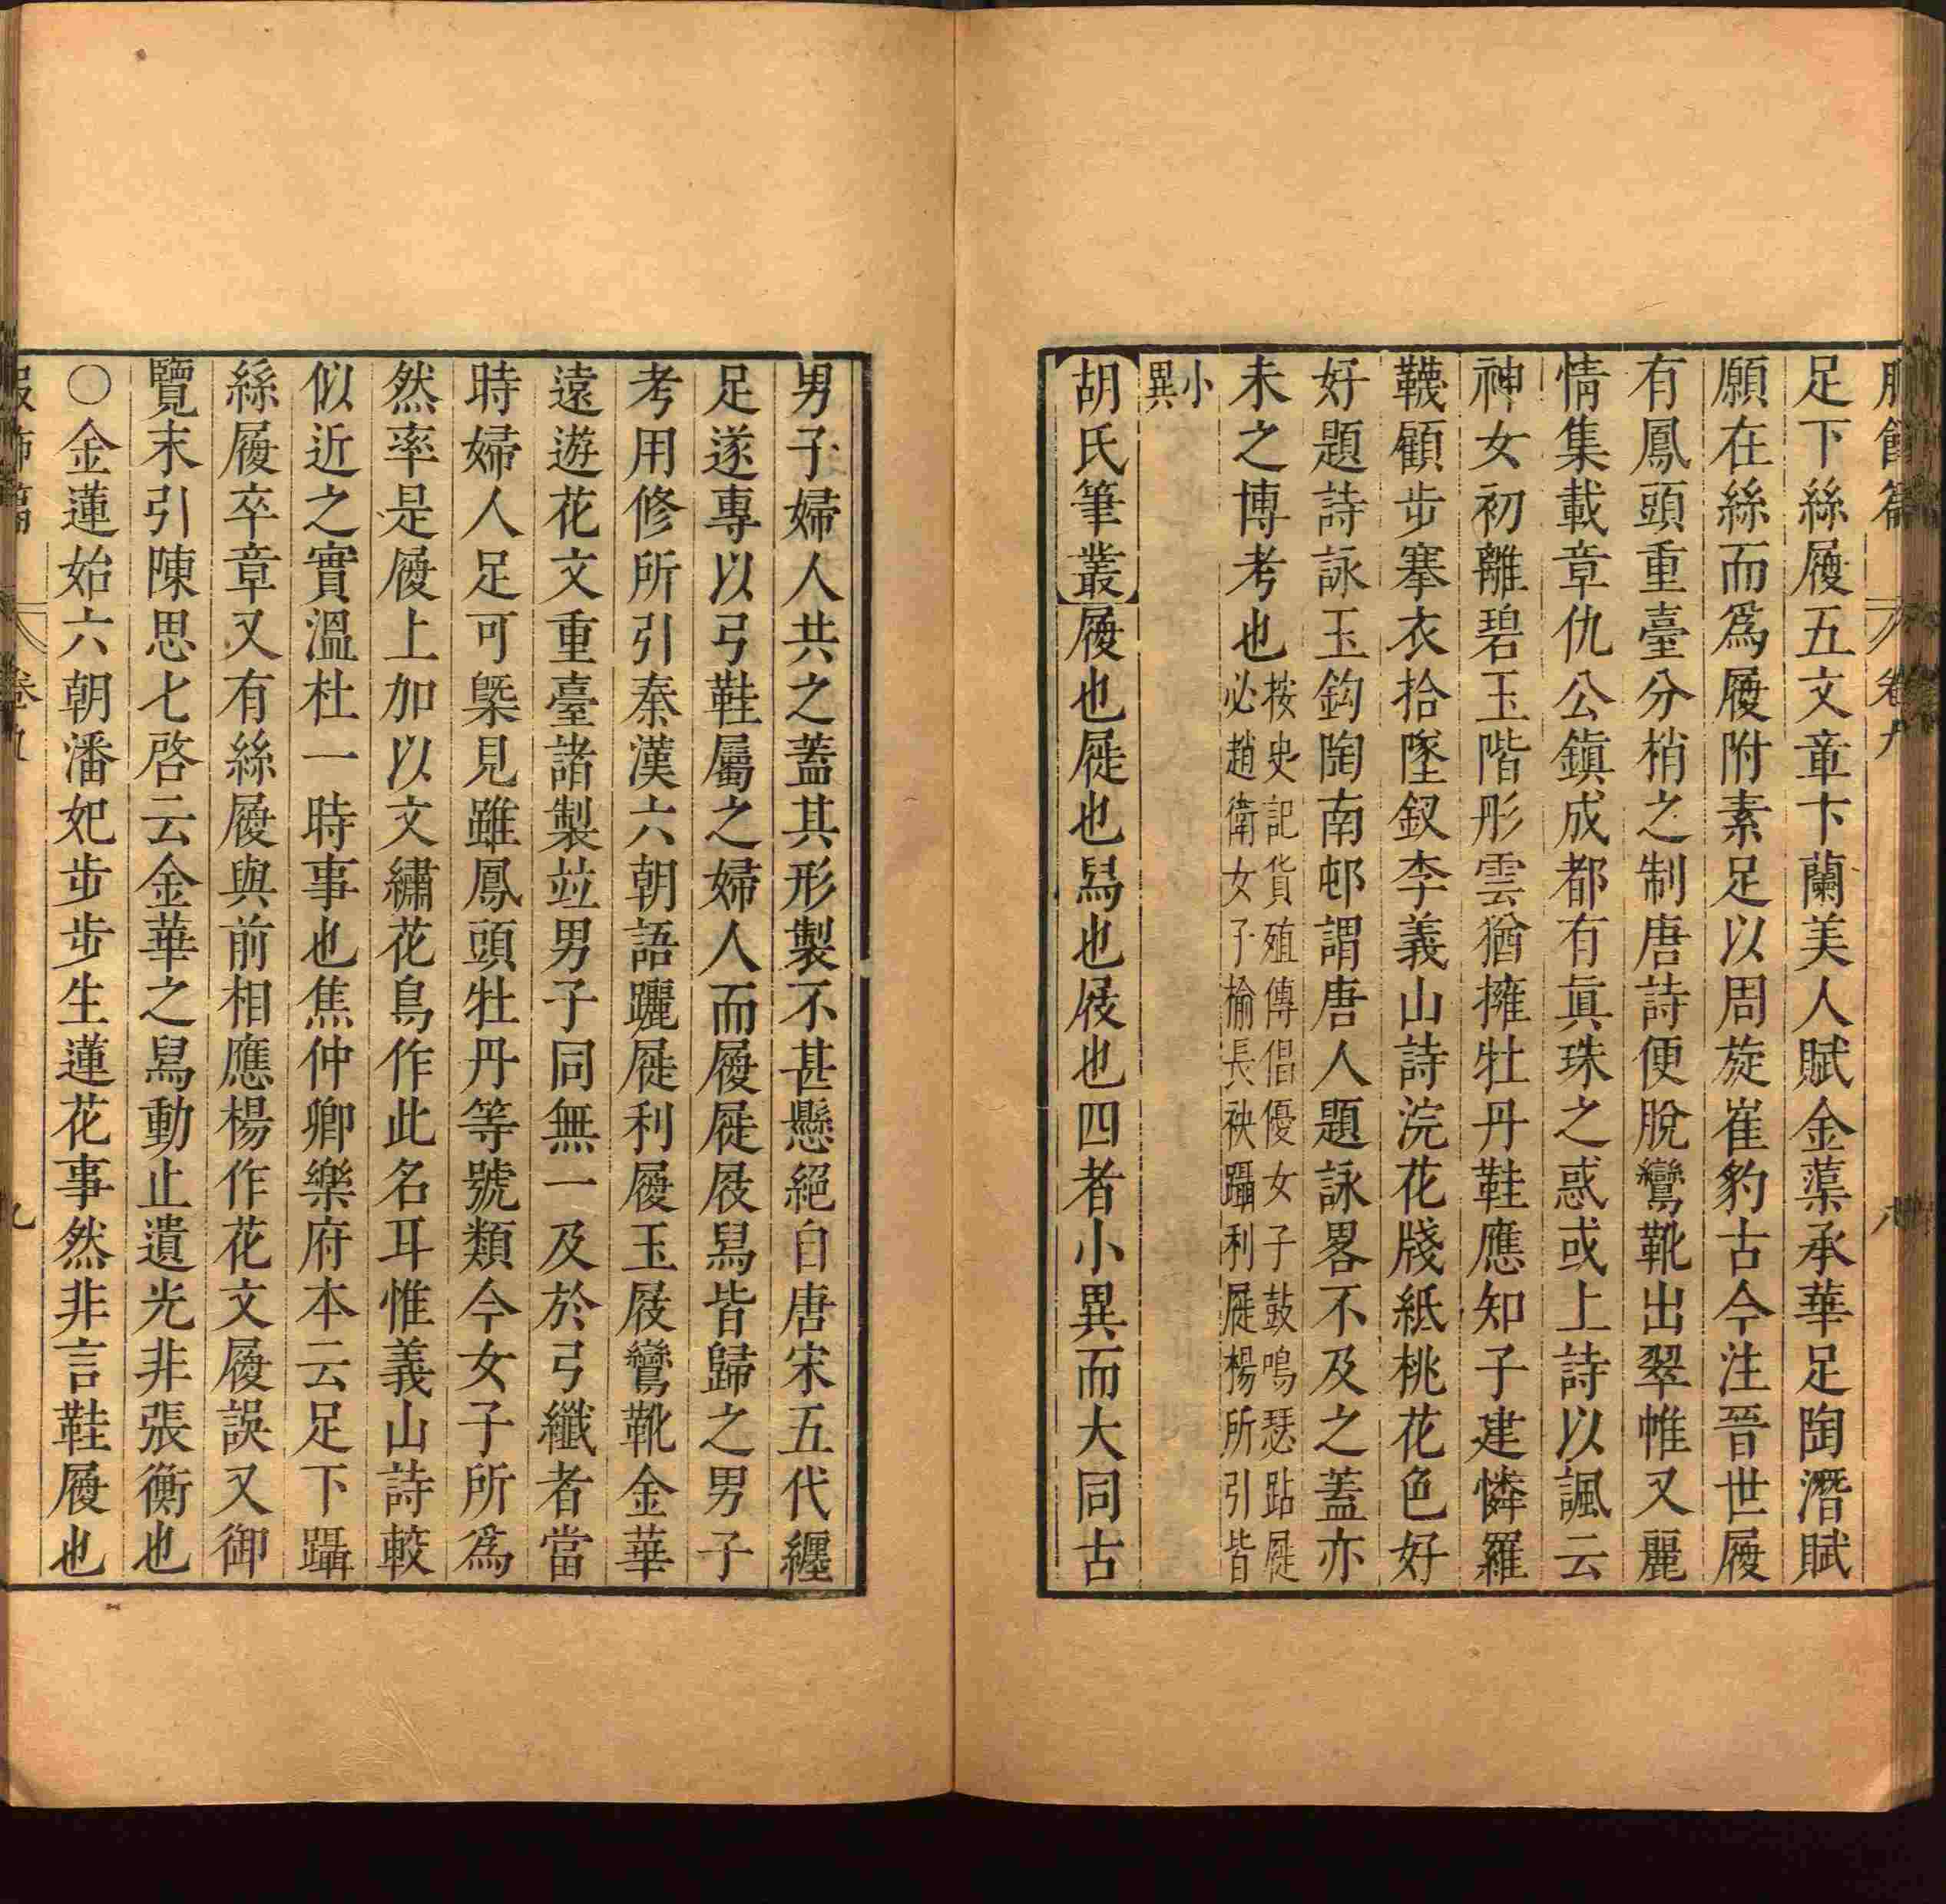 服飾篇 卷九 八
足下絲履五文章卞蘭美人賦金蕖承華足陶潛賦
願在絲而爲履附素足以周旋崔豹古今注晉世履
有鳳頭重臺分梢之制唐詩便脫鸞靴出翠帷又麗
情集載章仇公鎮成都有眞珠之惑或上詩以諷云
神女初離碧玉階彤雲猶擁牡丹鞋應知子建憐羅
韈顧步搴衣拾墜釵李義山詩浣花牋紙桃花色好
好題詩詠玉鈎陶南邨謂唐人題詠畧不及之蓋亦
未之博考也按史記貨殖傳倡優女子鼓鳴瑟跕屣
必趙衛女子揄長袂躡利屣楊所引皆
小
異
【胡氏筆叢】履也屣也舄也屐也四者小異而大同古
男子婦人共之蓋其形製不甚懸絕自唐宋五代纏
足遂專以弓鞋屬之婦人而履屣屐舄皆歸之男子
考用修所引秦漢六朝語躧屣利履玉屐鸞靴金華
遠遊花文重臺諸製竝男子同無一及於弓纖者當
時婦人足可槩見雖鳳頭牡丹等號類今女子所爲
然率是履上加以文繡花鳥作此名耳惟義山詩較
似近之實溫杜一時事也焦仲卿樂府本云足下躡
絲履卒章又有絲履與前相應楊作花文履誤又御
覽末引陳思七啓云金華之舄動止遺光非張衡也
○金蓮始六朝潘妃步步生蓮花事然非言鞋履也
服飾篇 卷九 九